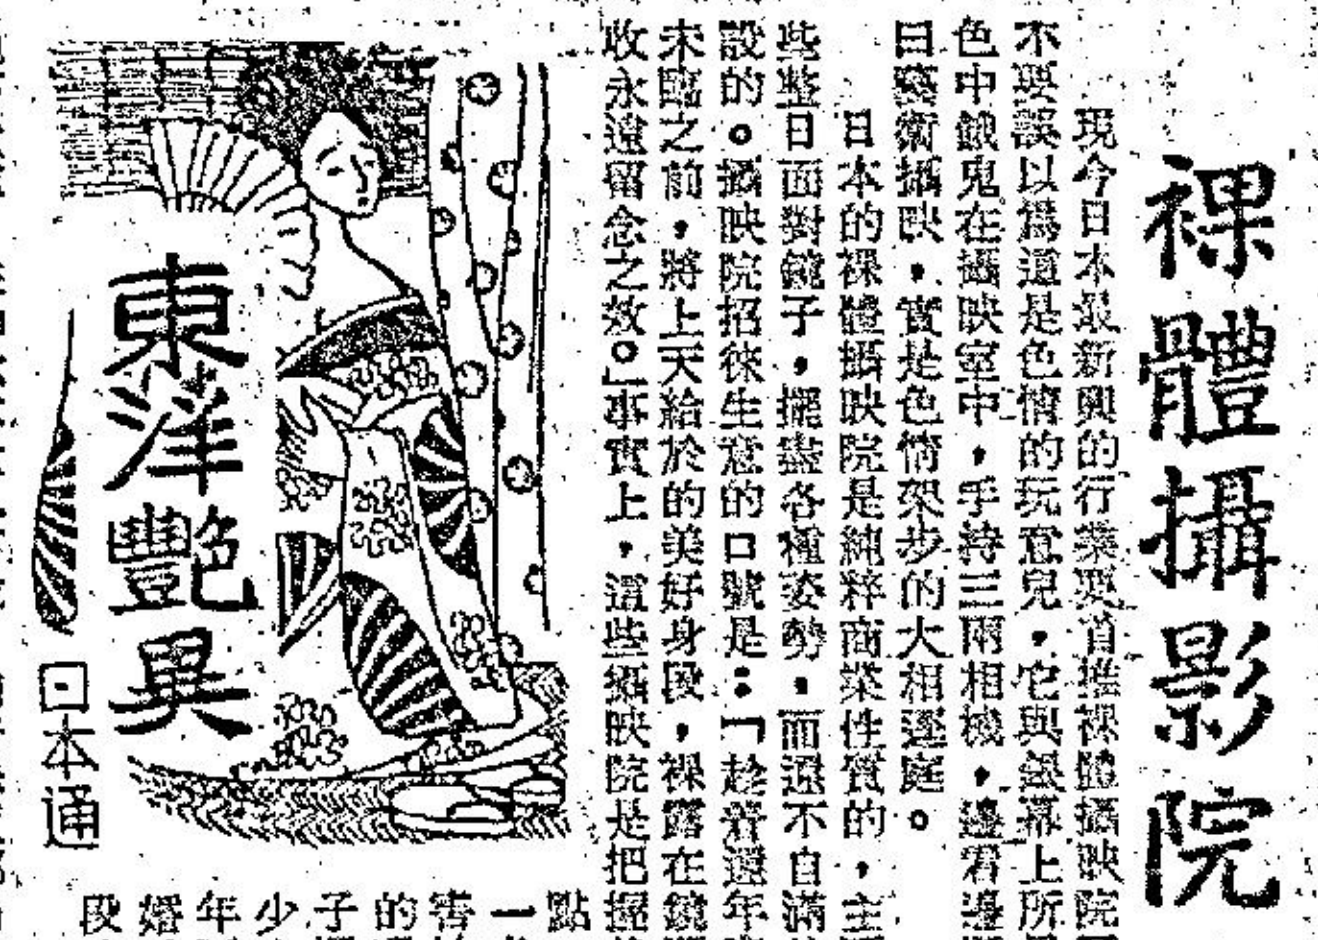 裸體攝影院
現今日本最新興的行業要首推裸體攝映院
不要誤以為這是色情的玩意兒，它與銀幕上所
色中餓鬼在攝映室中，手持三兩相機，邊看邊
曰藝術攝映，實是色情架步的大相逕庭。
日本的裸體攝映院是純粹商業性質的，主
些整日面對鏡子，擺盡各種姿勢，而還不自滿
設的。攝映院招徠生意的口號是：「趁着還年
未臨之前，將上天給於的美好身段，裸露在鏡
收永遠留念之效。」事實上，這些攝映院是把握
東洋艷異
日本通
點
一
害
的
子
少
年
婚
段